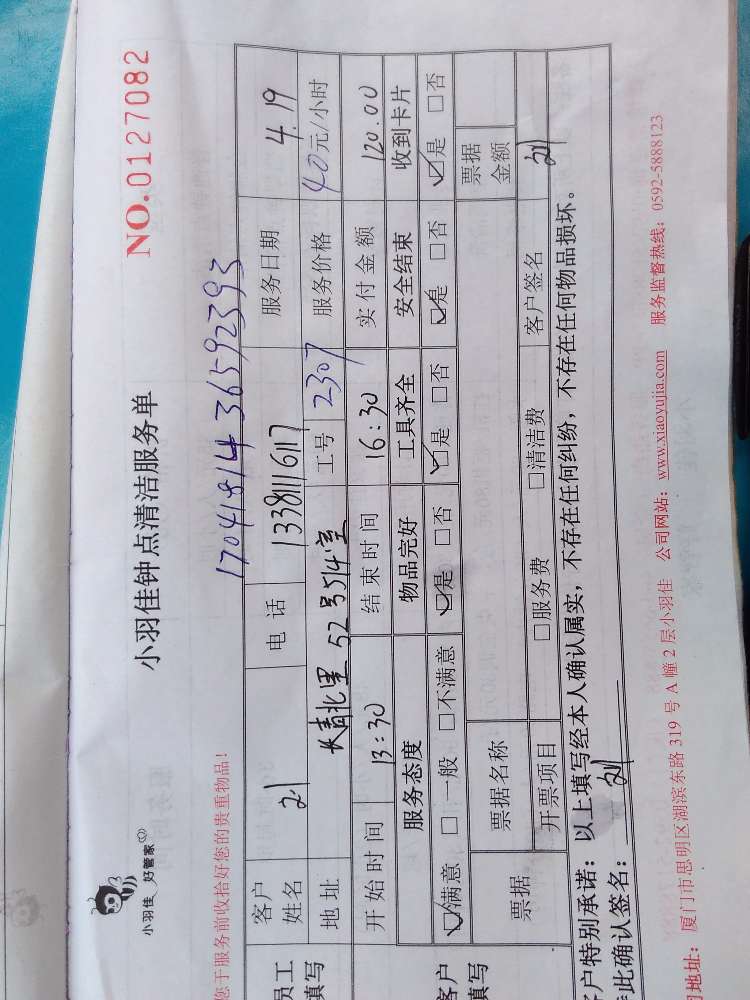 小羽佳 好管家
小羽佳钟点清洁服务单
NO.0127082
您于服务前收拾好您的贵重物品！
17041814 36592393
员工
填写
客户
姓名
电话 13381116117 服务日期 4.19
地址 长青北里 52号514室 工号 2307 服务价格 40元/小时
开始时间 13:30 结束时间 16:30 实付金额 120.00
服务态度 物品完好 工具齐全 安全结束 收到卡片
客户
填写
☑满意 □一般 □不满意 ☑是 □否 ☑是 □否 ☑是 □否 ☑是 □否
票据 票据名称 票据
金额
开票项目 □服务费 □清洁费 客户签名 刘
户特别承诺：以上填写经本人确认属实，不存在任何纠纷，不存在任何物品损坏。
此确认签名： 刘
地址：厦门市思明区湖滨东路 319 号 A 幢 2 层小羽佳 公司网站：www.xiaoyujia.com 服务监督热线：0592-5888123